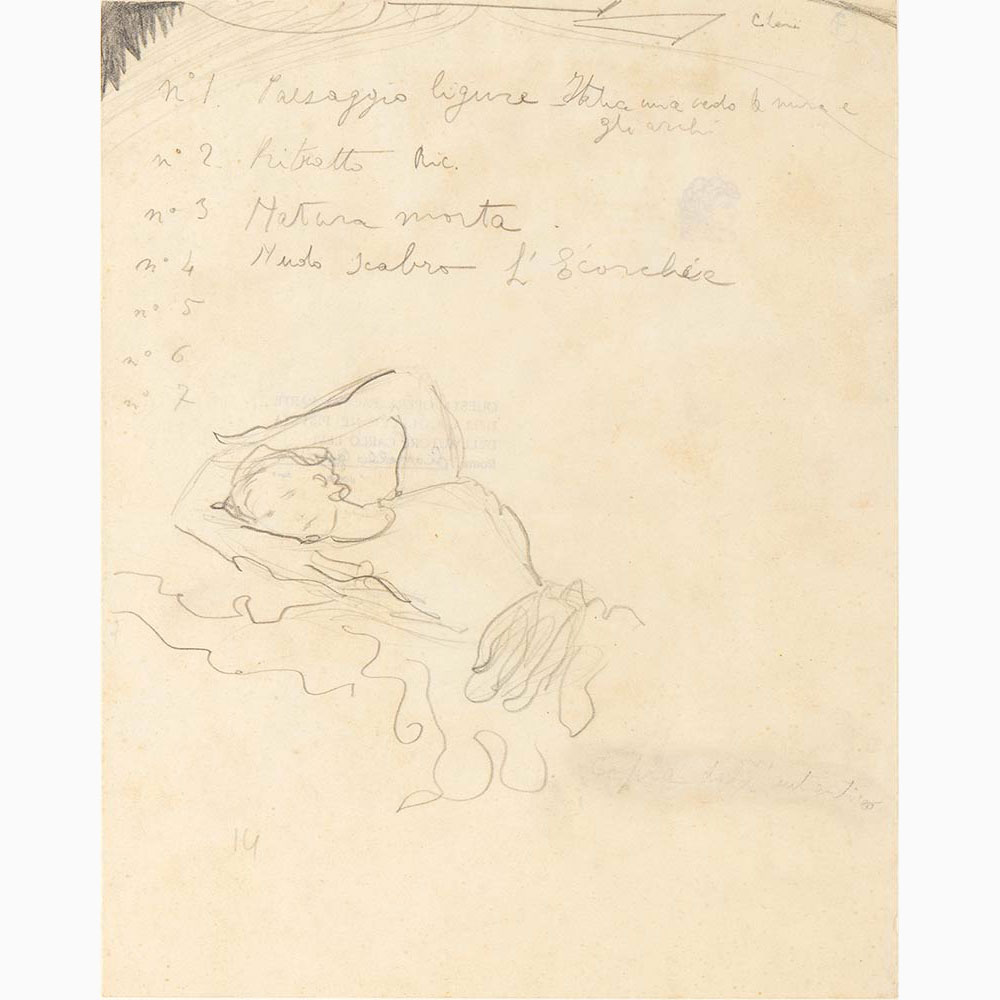 n° 1. Paesaggio ligure Italia una vedo le mura e
gli archi
n° 2. Ritratto Ric.
n° 3 Natura morta.
n° 4 Nudo scabro L'Écorchée
n° 5
n° 6
n° 7
14